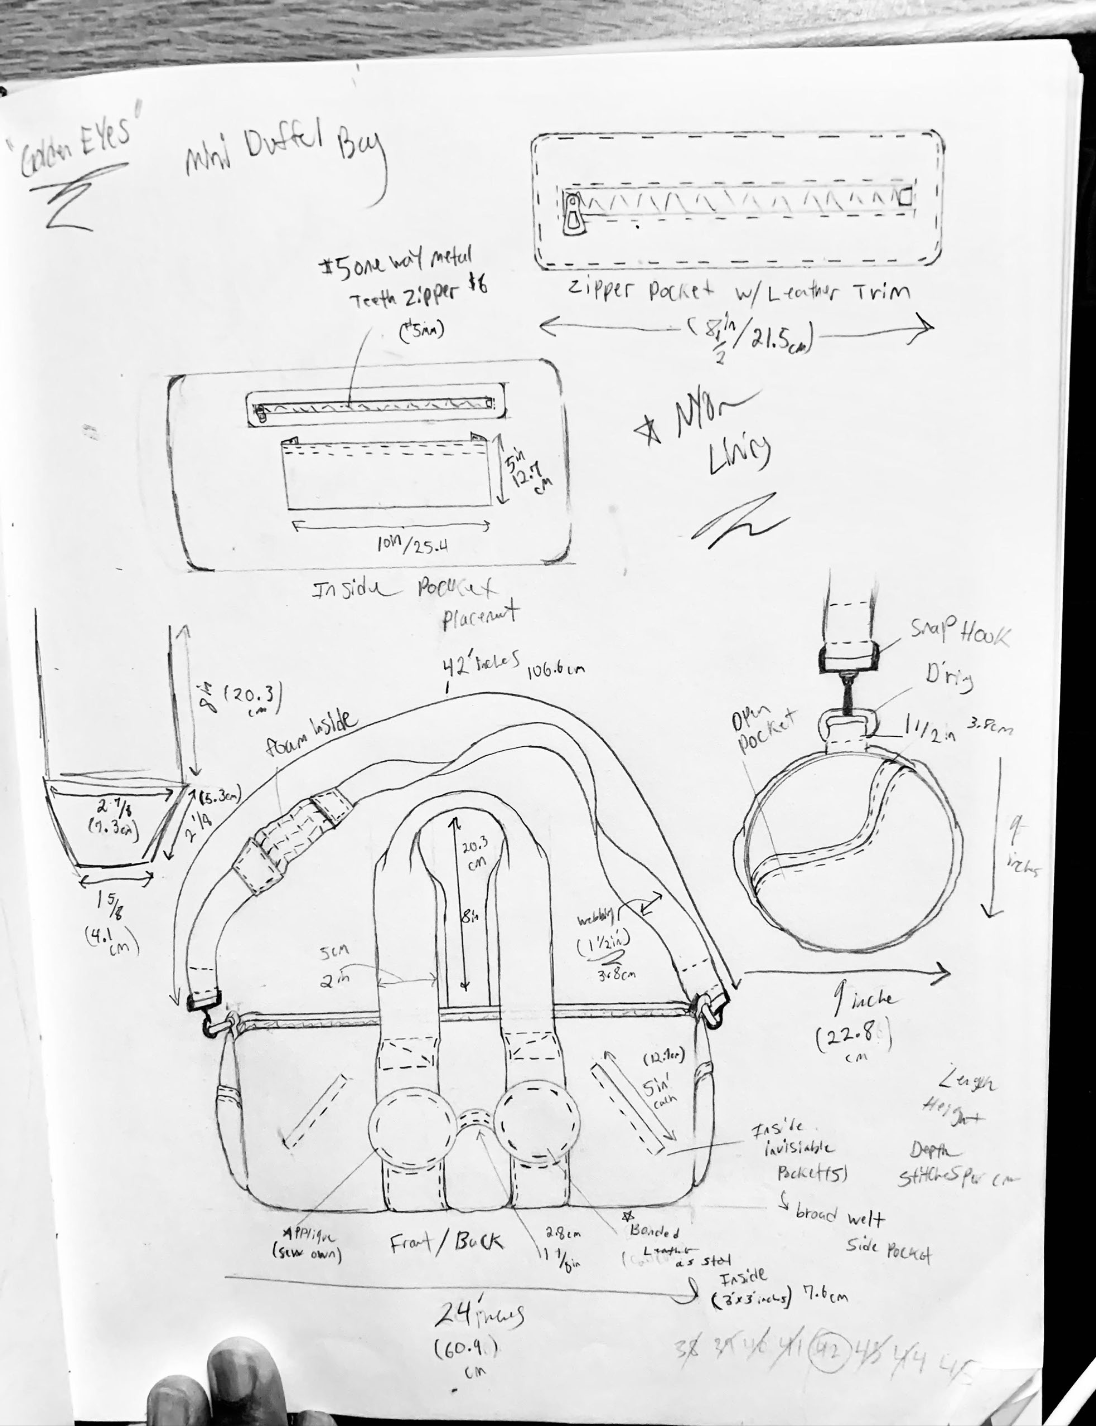 "Golden EYes"
mini Duffel Bag
#5 one way metal
Teeth Zipper #6
(#5mm)
Zipper Pocket w/ Leather Trim
(8 1/2 in/21.5cm)
Nylon
Lining
5in
12.7
cm
10in/25.4
Inside Pocket
Placement
8in (20.3)
cm
2 7/8
(7.3cm)
(5.3cm)
2 1/8
1 5/8
(4.1
cm)
42' inches 106.6cm
foam inside
20.3
cm
8in
5cm
2in
webbing
(1 1/2in)
3.8cm
Snap Hook
D'ring
Open
Pocket
1 1/2 in 3.8cm
9
inches
9 inche
(22.8
cm
Length
Height
Depth
Stitches per cm
(12.7cm)
5in'
each
Inside
invisiable
Pocket(s)
broad welt
Side Pocket
Applique
(sew own)
Front/Back
2.8cm
1 1/8in
Bonded
Leather
as stol
Inside
(3'x3' inches) 7.6cm
24' inches
(60.9)
cm
38 39 40 41 42 43 44 45